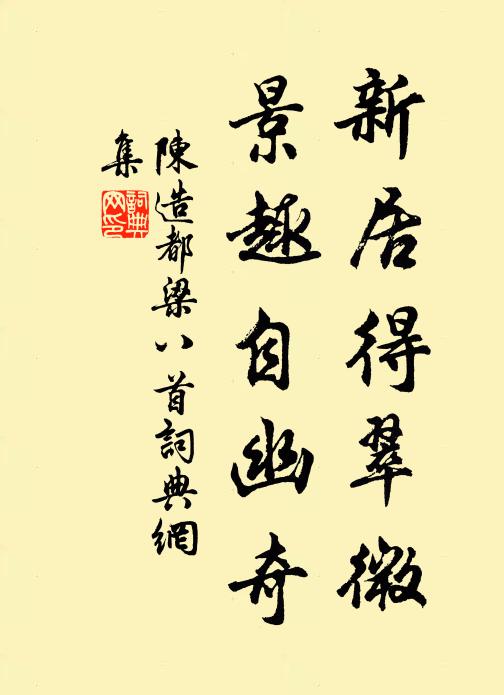 新居得翠微
景趣自幽奇
陳造都梁八首詞典網
集
詞典
网印